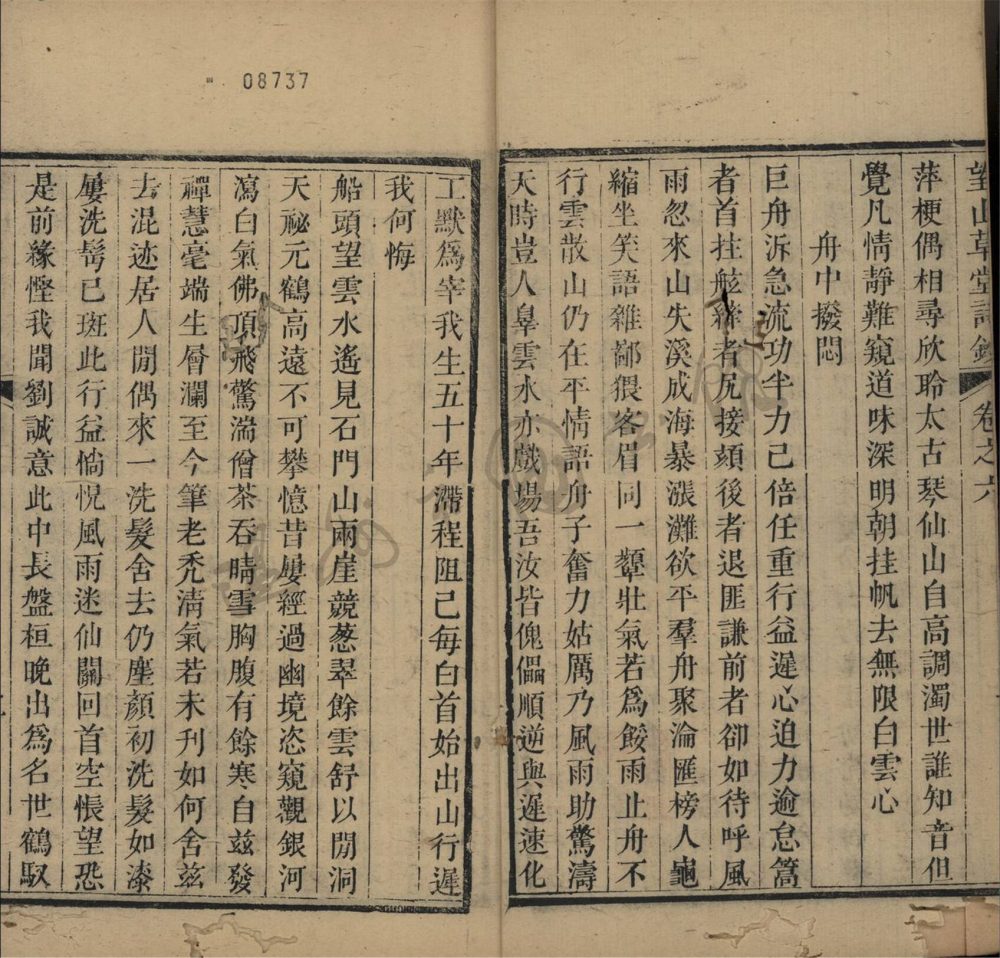 望山草堂詩鈔 卷之六
萍梗偶相尋欣聆太古琴仙山自高調濁世誰知音但
覺凡情靜難窺道味深明朝挂帆去無限白雲心
舟中撥悶
巨舟泝急流功半力已倍任重行益遲心迫力逾怠篙
者首拄舷縴者尻接頦後者退匪謙前者卻如待呼風
雨忽來山失溪成海暴漲灘欲平羣舟聚淪匯榜人龜
縮坐笑語雜鄙猥客眉同一顰壯氣若爲餒雨止舟不
行雲散山仍在平情語舟子奮力姑厲乃風雨助驚濤
天時豈人辠雲水亦戲場吾汝皆傀儡順逆與遲速化
工默爲宰我生五十年滯程阻己每白首始出山行遲
我何悔
船頭望雲水遙見石門山兩崖競葱翠餘雲舒以閒洞
天祕元鶴高遠不可攀憶昔屢經過幽境恣窺觀銀河
瀉白氣佛頂飛驚湍僧茶吞晴雪胸腹有餘寒自茲發
禪慧毫端生層瀾至今筆老禿淸氣若未刊如何舍茲
去混迹居人閒偶來一洗髮舍去仍塵顏初洗髮如漆
屢洗髩已斑此行益惝怳風雨迷仙關回首空悵望恐
是前緣慳我聞劉誠意此中長盤桓晚出爲名世鶴馭
08737